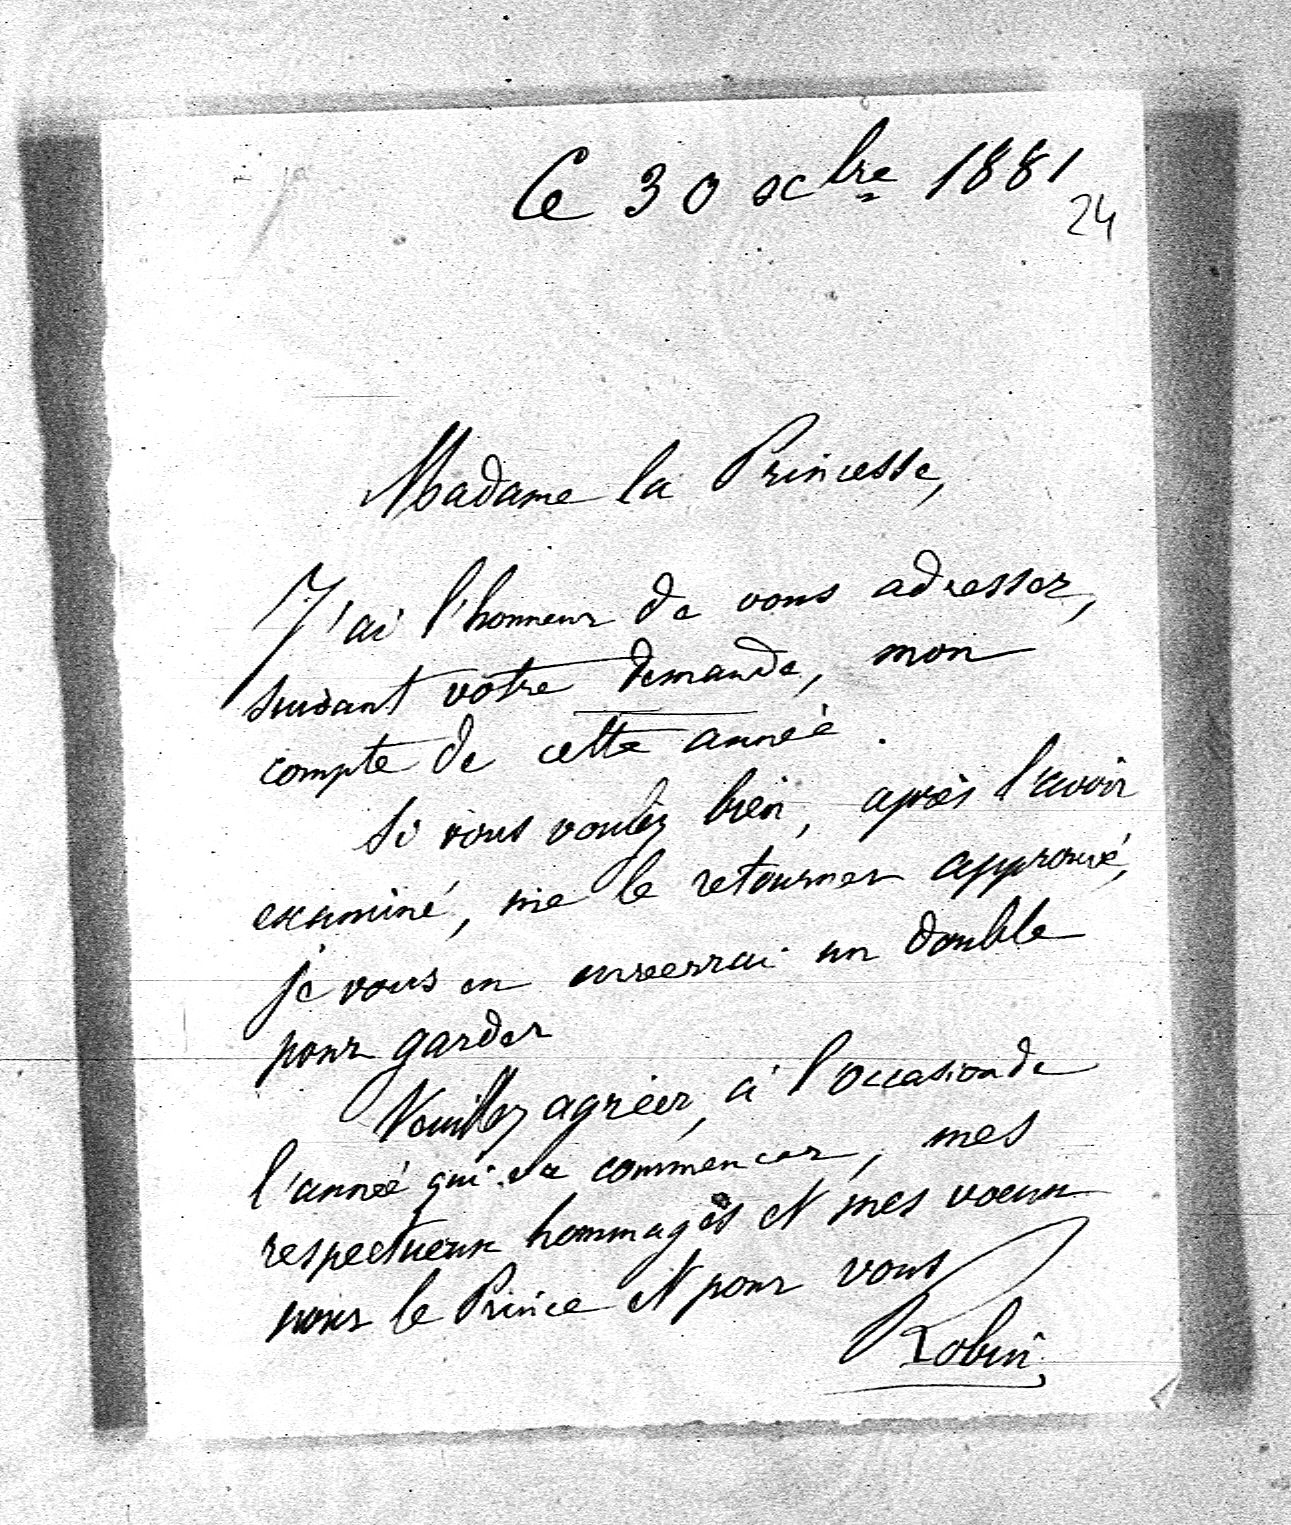 Ce 30 xbre 1881
24
Madame la Princesse,
J'ai l'honneur de vous adresser,
suivant votre demande, mon
compte de cette année.
Si vous voulez bien, après l'avoir
examiné, me le retourner approuvé,
je vous en enverrai un double
pour garder
Veuillez agréer, à l'occasion de
l'année qui va commencer, mes
respectueux hommages et mes voeux
pour le Prince et pour vous
Robin